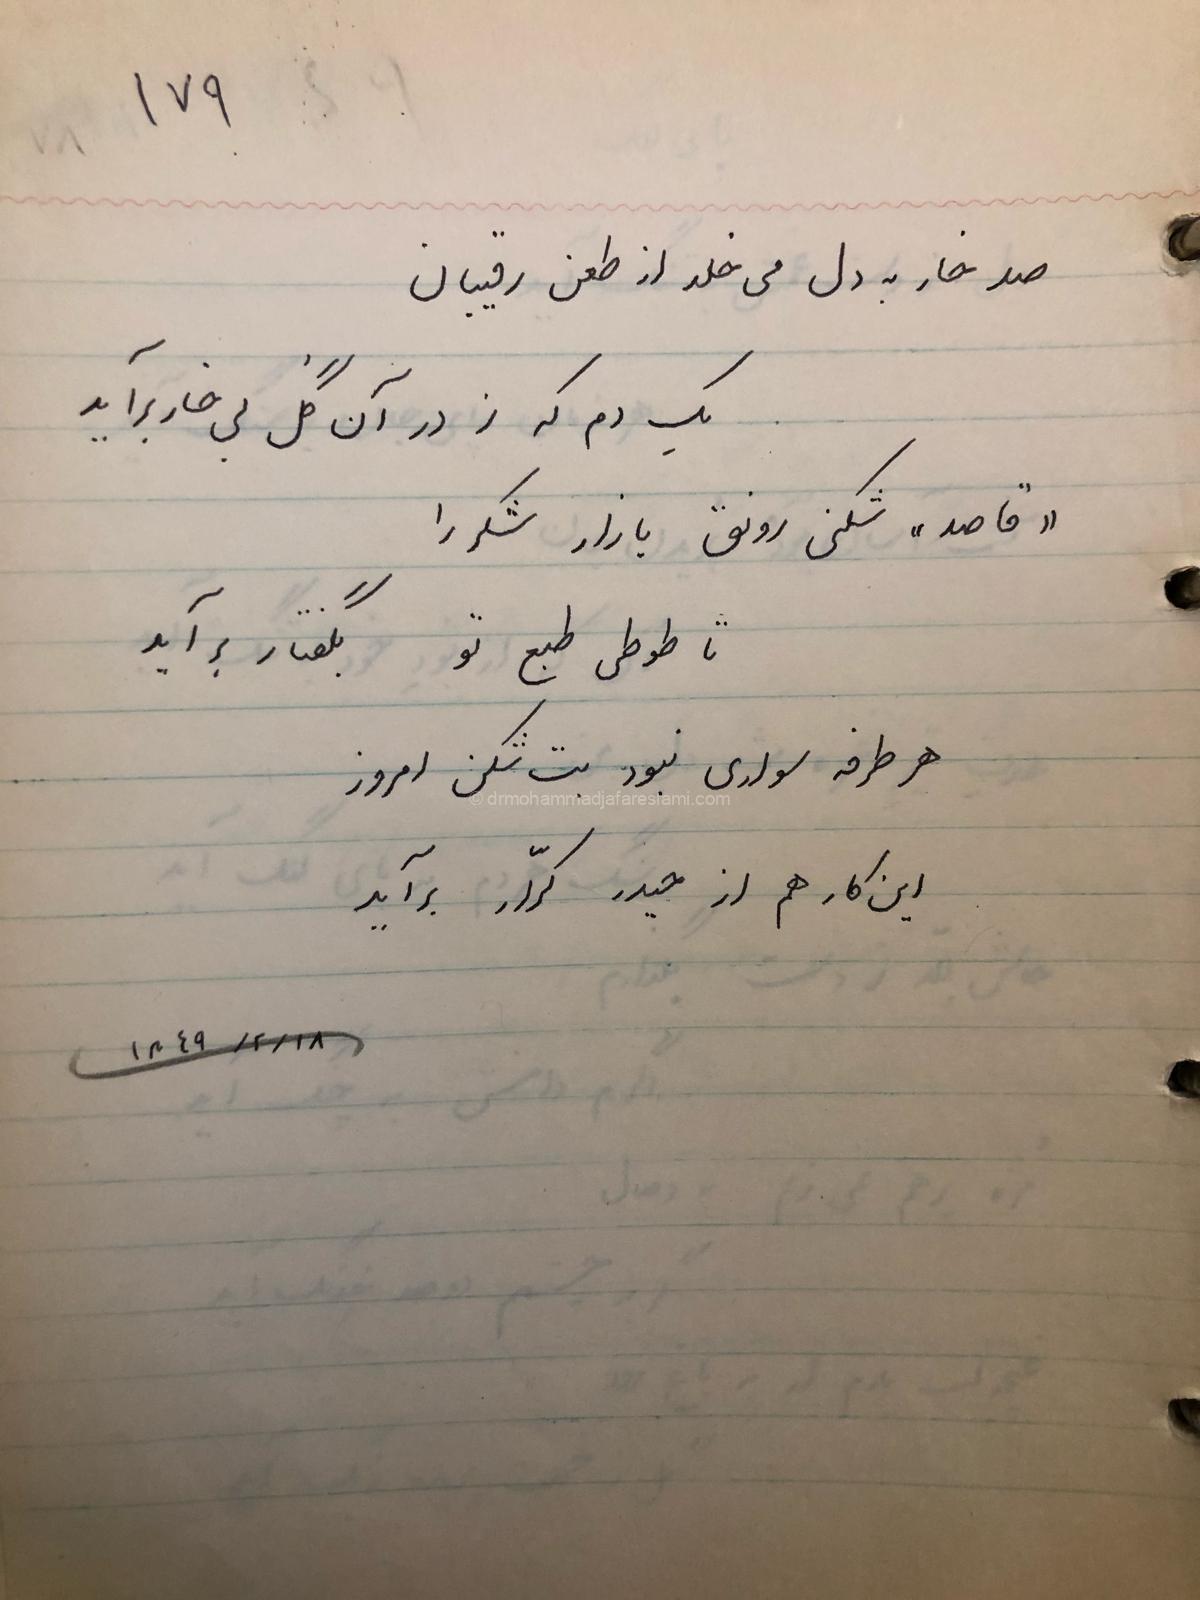 ۱۷۹
صد خار به دل می خلد از طعن رقیبان
یک دم که ز در آن گل بی خار برآید
«قاصد» شکنی رونق بازار شکر را
تا طوطی طبع تو بگفتار برآید
هر طرفه سواری نبود بت شکن امروز
© drmohammadjafareslami.com
این کار هم از حیدر کرّار برآید
۱۳۴۹/۲/۱۸